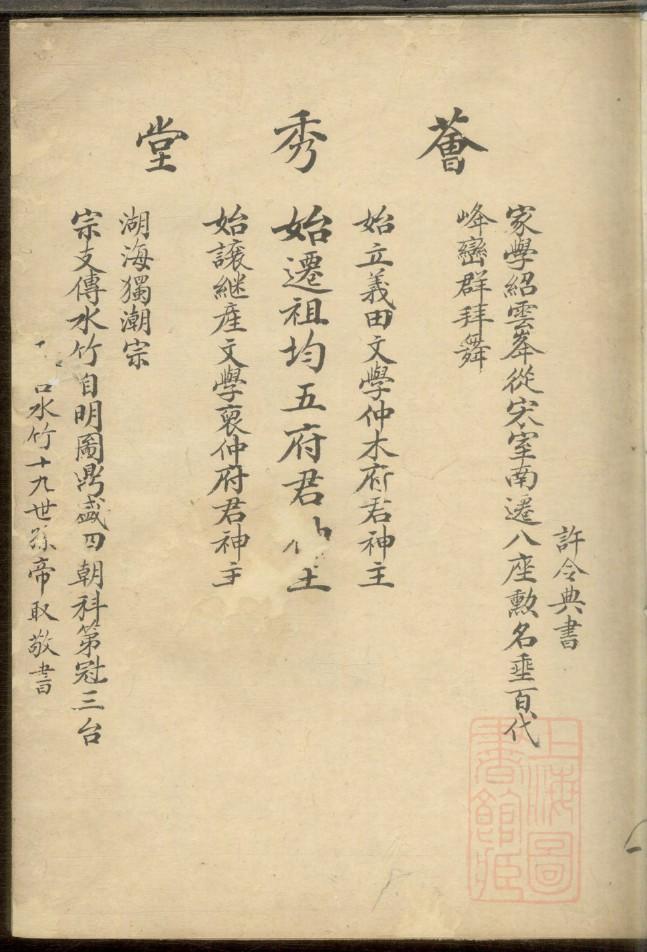 薈秀堂
許令典書
家學紹雲峯從宋室南遷八座勲名垂百代
峰巒群拜舞
始立義田文學仲木府君神主
始遷祖均五府君主
始讓継産文學裒仲府君神主
湖海獨潮宗
宗支傳水竹自明圖鼎盛四朝科第冠三台
水竹十九世孫帝取敬書
上海圖書館藏